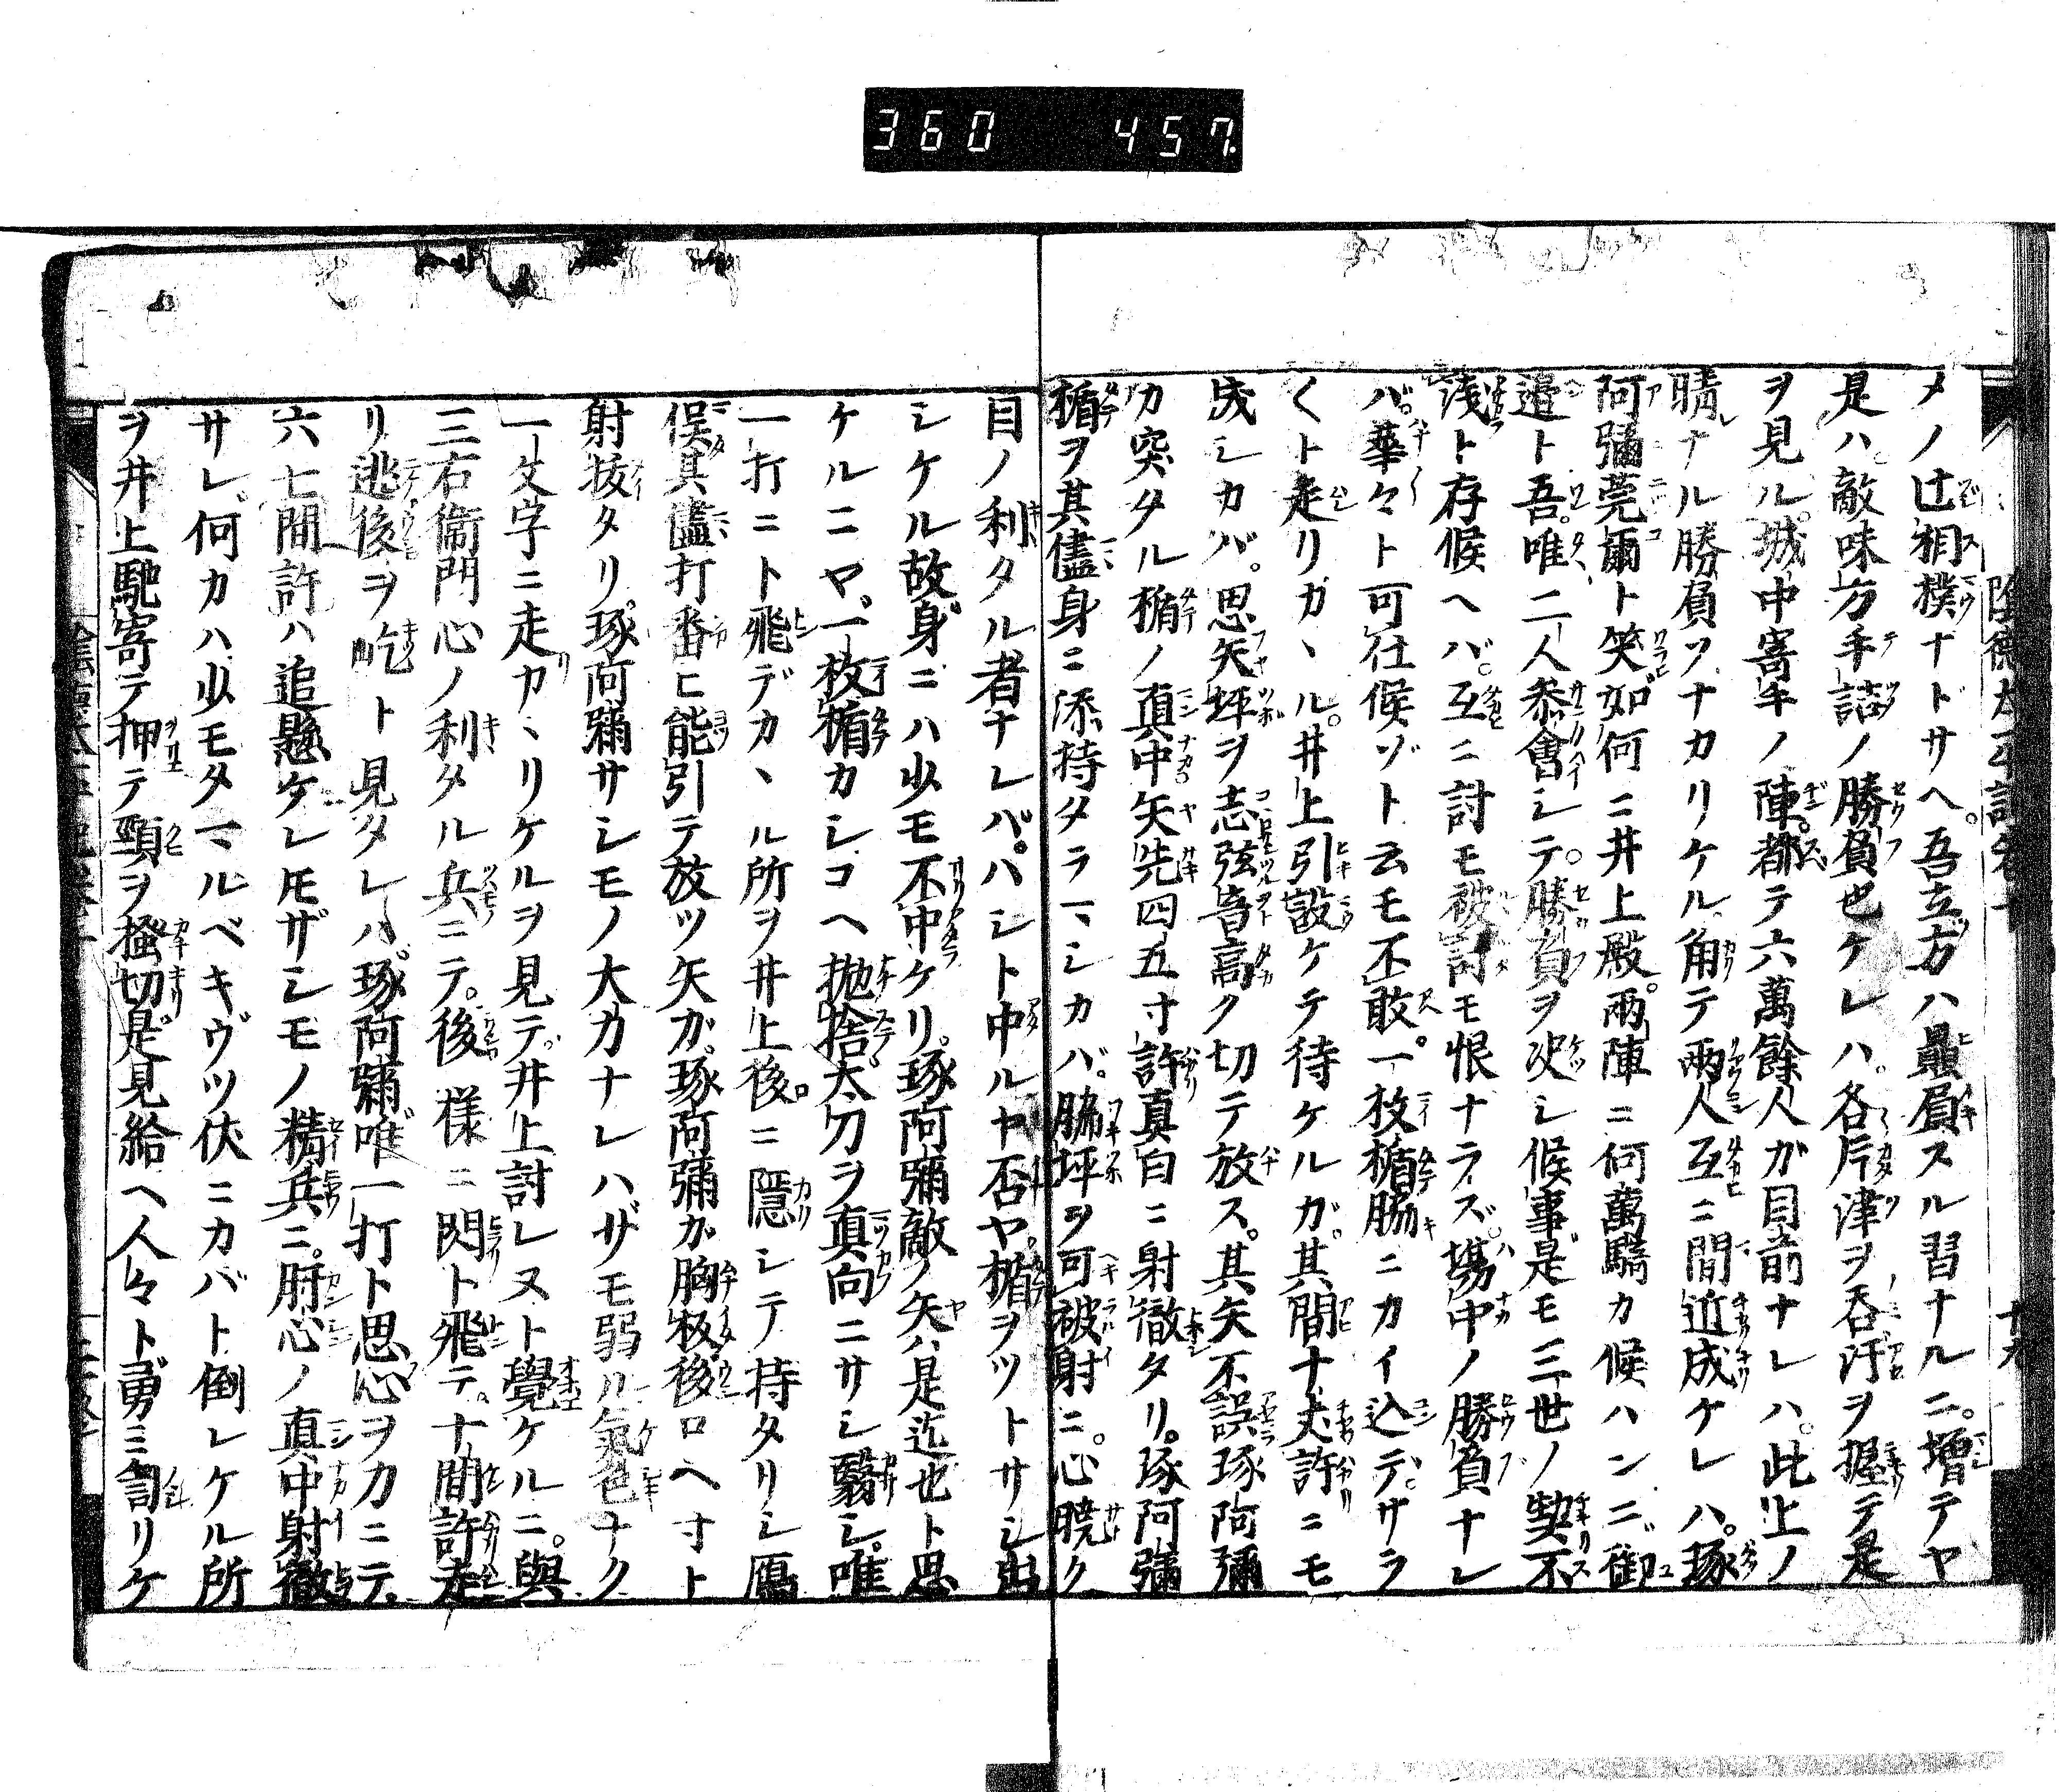 360 457
メノ辻相撲ナドサヘ。吾立方ハ最屓スル習ナルニ。増テヤ
是ハ。敵味方手詰ノ勝負也ケレハ。各片津ヲ呑汗ヲ握テ是
ヲ見ル。城中寄手ノ陣。都テ六萬餘人ガ目前ナレハ。此上ノ
晴ナル勝負ソナカリケル。角テ兩人互ニ間近成ケレハ。琢
阿彌莞爾ト笑。如何ニ井上殿。兩陣ニ何萬騎カ候ハンニ。御
邉ト吾。唯二人参會シテ。勝負ヲ决シ候事。是モ三世ノ契不
淺ト存候ヘバ。互ニ討モ被討モ恨ナラズ。塲中ノ勝負ナレ
バ。華々ト可仕候ゾト云モ不敢。一枚楯脇ニカイ込デ。サラ
〱ト走リカヽル。井上引設ケテ待ケルガ。其間十丈許ニモ
成シカバ。思矢坪ヲ志弦音高ク切テ放ス。其矢不誤琢阿彌
カ突タル楯ノ真中矢先四五寸許真白ニ射徹タリ。琢阿彌
楯ヲ其儘身ニ添持タラマシカバ。脇坪ヲ可被射ニ。心曉ク
目ノ利タル者ナレバ。ハシト中ルヤ否ヤ。楯ヲツトサシ出
シケル故身ニハ少モ不中ケリ。琢阿彌敵ノ矢ハ是迄也ト思
ケルニヤ。一枚楯カシコヘ抛捨太刀ヲ真向ニサシ翳シ。唯
一打ニト飛デカヽル所ヲ井上後ニ隱シテ持タリシ鴈
俣其儘打番ヒ能引テ放ツ矢ガ。琢阿彌ガ胸板後ロヘ寸ト
射拔タリ。琢阿彌サシモノ大力ナレハザモ弱ル氣色ナク
一文字ニ走カヽリケルヲ見デ。井上討レヌト覺ケルニ。與
三右衞門心ノ利タル兵ニテ。後樣ニ閃ト飛テ。十間許走
リ逃後ヲ屹ト見タレハ。琢阿彌唯一打ト思心ヲ力ニテ。
六七間許ハ追懸ケレ𪜈ザシモノ精兵ニ。肝心ノ真中射徹
サレ。何カハ少モタマルベキ。ウツ伏ニカバト倒レケル所
ヲ井上馳寄テ押テ頸ヲ搔切。是見給ヘ人々ト勇ミ訇リケ